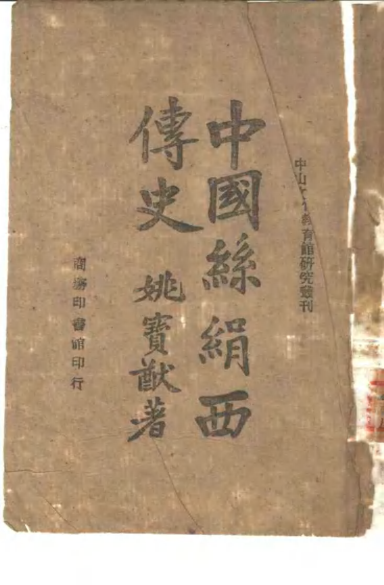 中山教育館研究叢刊
中國絲絹西
傳史 姚寶猷著
商務印書館印行